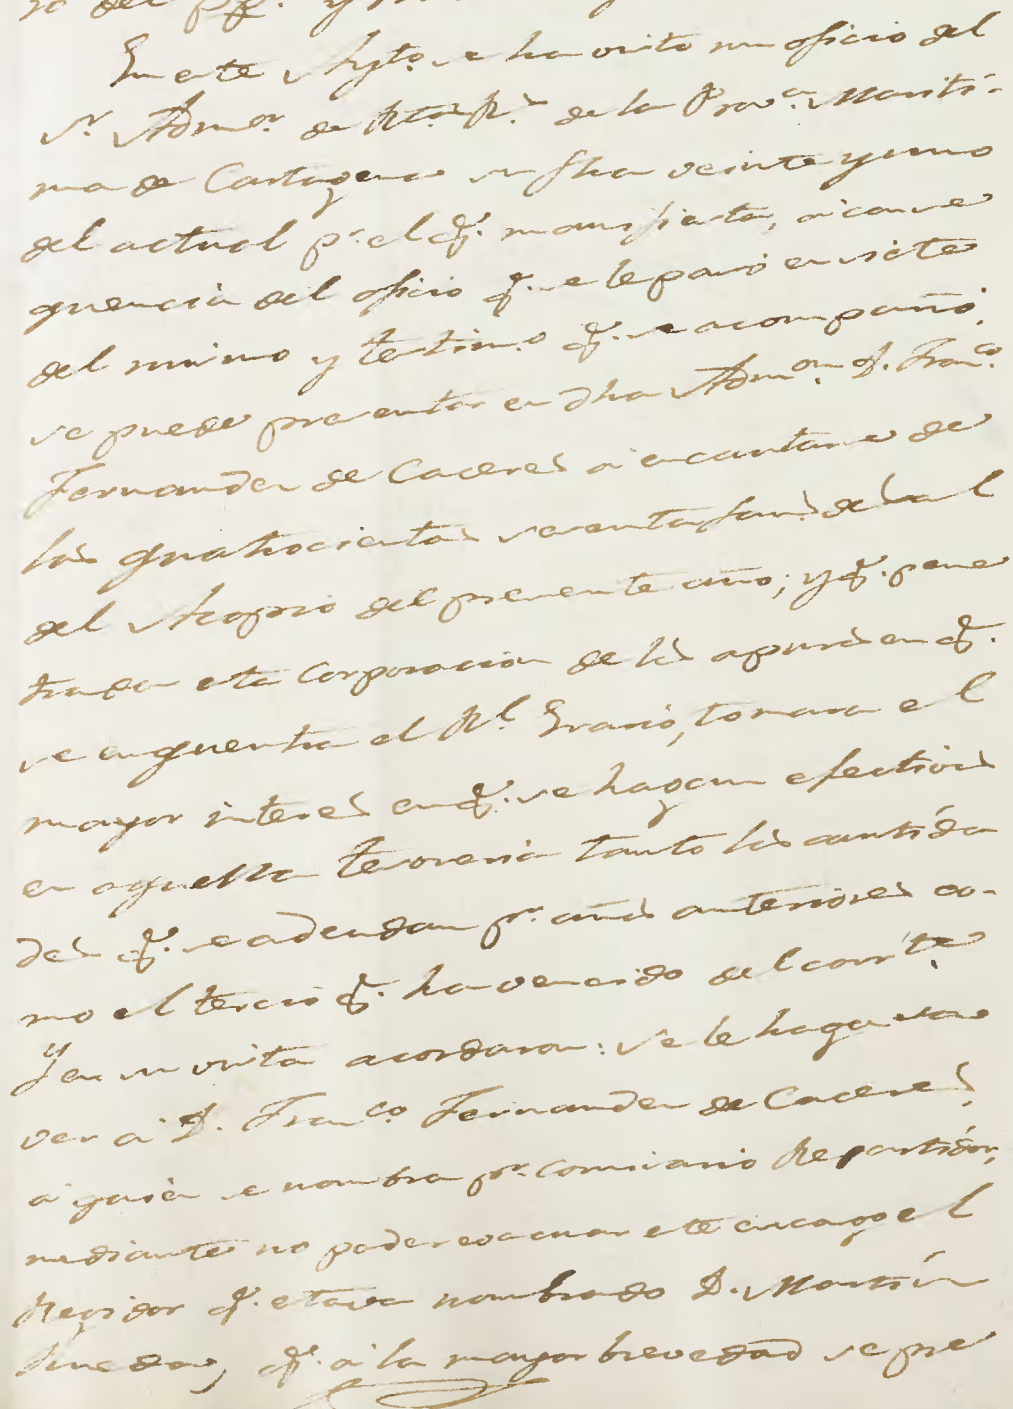 En este Aytto. se ha visto un oficio del
Sr. Admor. de Rtas. Rs. de la Prova. Maríti-
ma de Cartagena su fha veinte y uno
del actual pr. el q. manifiesta, a conse
quencia del oficio q. se le pasó en siete
del mismo y testimo. q. se acompañó,
se puede presentar en dha Admon. D. Franco.
Fernandez de Caceres a encantarse de
las quatrocientas sesenta fans. de sal
del Acopio del presente año; y q. pene
trada esta Corporacion de los apuros en q.
se enquentra el Rl. Erario, tomara el
mayor interes en q. se hagan efectivos
en aquella tesoreria tanto las cantida
des q. se adeudan pr. años anteriores co-
mo el tercio q. ha vencido del corrte.
Y en su vista acordaron: Se le haga sa
ver a D. Franco. Fernandez de Caceres,
a quien se nombra pr. comisario Repartidor,
mediante no poder evacuar este encargo el
Regidor q. estava nombrado D. Martín
q. a la mayor brevedad se pre